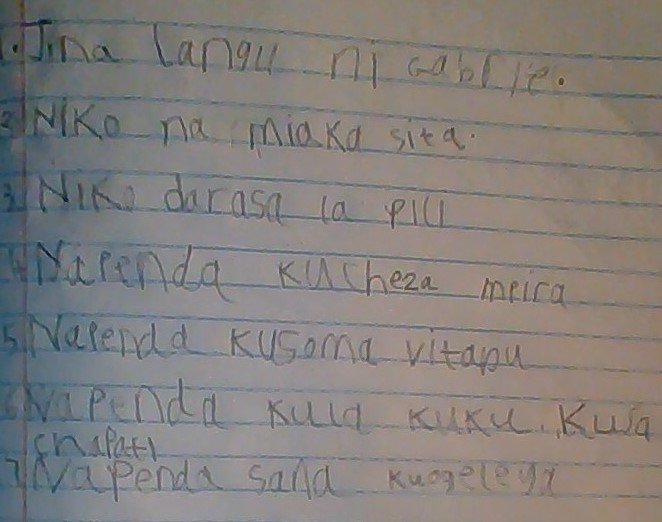 1. Jina langu ni Gabrie.
2 Niko na miaka sita.
3 Niko darasa la pili
4 Napenda kucheza meira
5 Napenda kusoma vitapu
6 Napenda kula kuku. Kwa
chapati
7 Napenda sana kuogeleya